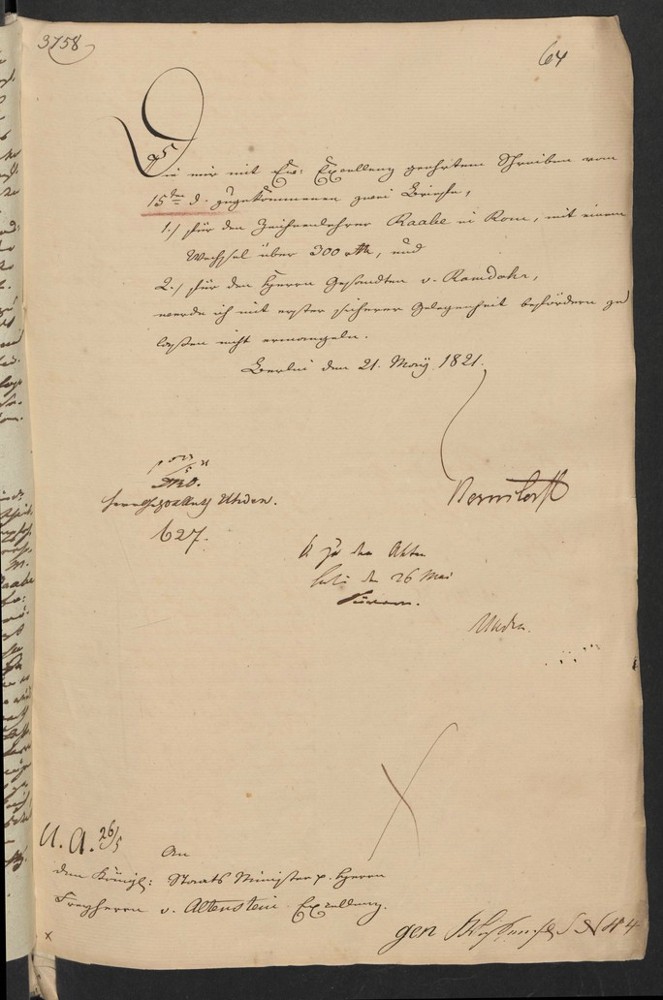 3758
64
Die mir mit Ew: Excellenz geehrtem Schreiben vom
15ten d. zugekommenen zwei Briefe,
1./ für den Zeichenlehrer Raabe in Rom, mit einem
Wechsel über 300 rth, und
2./ für den Herrn Gesandten v. Ramdohr,
werde ich mit erster sicherer Gelegenheit befördern zu
laßen nicht ermangeln.
Berlin den 21. May 1821.
Bernstorff
Uhden.
627.
zu den Akten
26 Mai
Uhden
U. A. 26/5
An
den Königl: Staats Minister p. Herrn
Freyherrn v. Altenstein Excellenz.
gen